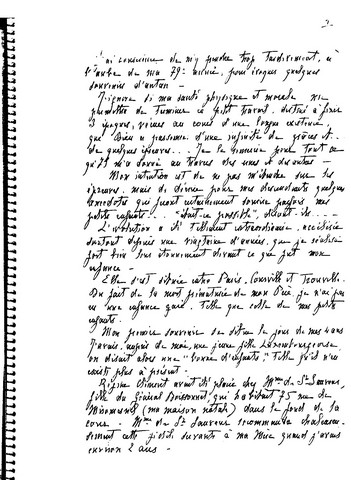 2-
J'ai conscience de m'y prendre trop tardivement, à
l'aube de ma 79e année, pour évoquer quelques
souvenirs d'antan -
J'ignore si ma santé physique et morale me
permettra de terminer ce petit travail, destiné à fixer
époques, vécues au cours d'une longue existence
que Dieu a parsemée d'une infinité de grâces et
de quelques épreuves... Je le remercie pour tout ce
qu'Il m'a donné au travers des unes et des autres -
Mon intention est de ne pas m'étendre sur les
épreuves, mais de décrire pour mes descendants quelques
anecdotes qui feront certainement sourire parfois mes
petits enfants... "était-ce possible", diront-ils...
L'évolution a été tellement extraordinaire, accélérée
surtout depuis une vingtaine d'années, que je réalise
fort bien leur étonnement devant ce que fut mon
enfance -
Elle s'est déroulée entre Paris, Louville et Trouville.
Du fait de la mort prématurée de mon Père, je n'ai pas
eu une enfance gaie. Telle que celle de mes petits
enfants.
Mon premier souvenir se situe le jour de mes 4 ans
J'avais, auprès de moi, une jeune fille Luxembourgeoise,
on disait alors une "bonne d'enfants". Telle qu'il n'en
existe plus à présent.
Régine Clément avait été placée chez Mme de St Sauveur,
fille du Général Boissonnet, qui habitait 75 rue de
Miromesnil (ma maison natale) dans le fond de la
cour - Mme de St Sauveur recommanda chaleureu-
sement cette fidèle servante à ma Mère quand j'avais
environ 2 ans -